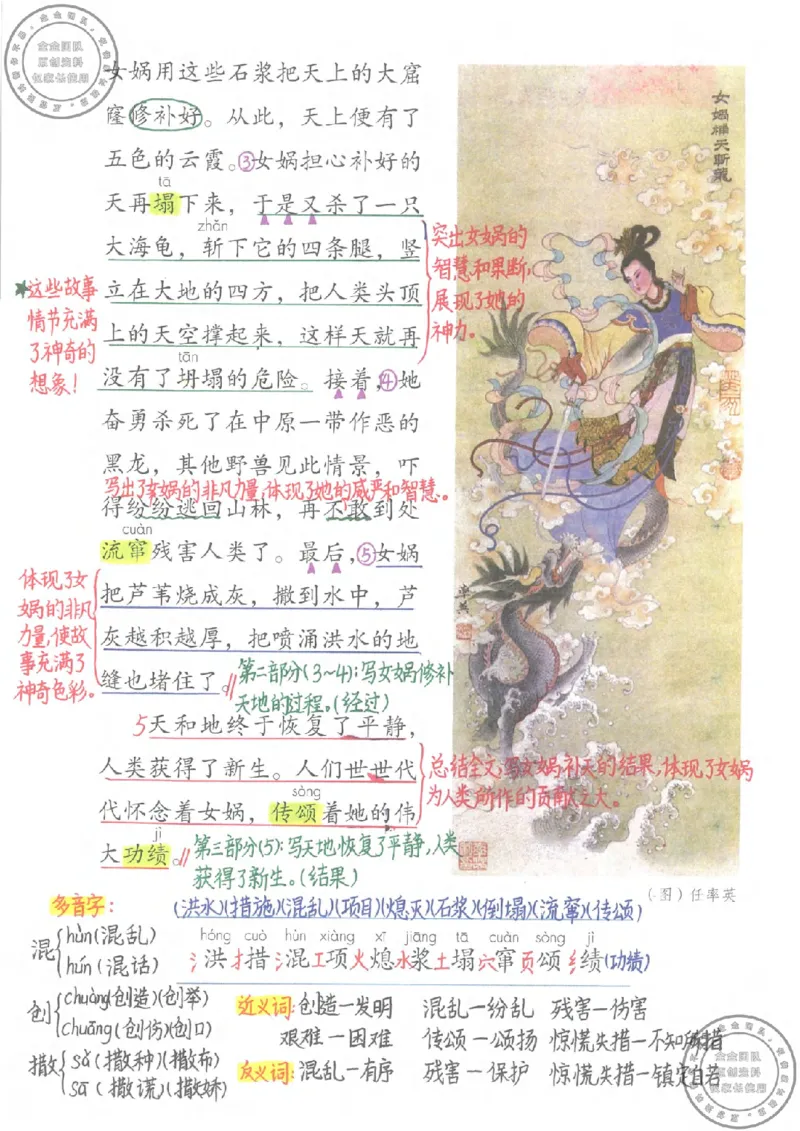 女娲用这些石浆把天上的大窟
窿修补好。从此，天上便有了
五色的云霞。③女娲担心补好的
tā
天再塌下来，于是又杀了一只
zhǎn
大海龟，斩下它的四条腿，竖
立在大地的四方，把人类头顶
上的天空撑起来，这样天就再
tān
没有了坍塌的危险。接着，④她
奋勇杀死了在中原一带作恶的
黑龙，其他野兽见此情景，吓
写出了女娲的非凡力量，体现了她的威严和智慧。
得纷纷逃回山林，再不敢到处
cuàn
流窜残害人类了。最后，⑤女娲
把芦苇烧成灰，撒到水中，芦
灰越积越厚，把喷涌洪水的地
缝也堵住了。
第二部分(3~4)：写女娲修补
天地的过程。(经过)
突出女娲的
智慧和果断，
展现了她的
神力。
★这些故事
情节充满
了神奇的
想象！
体现了女
娲的非凡
力量，使故
事充满了
神奇色彩。
5天和地终于恢复了平静，
人类获得了新生。人们世世代
sòng
代怀念着女娲，传颂着她的伟
jì
大功绩。
总结全文，写女娲补天的结果，体现了女娲
为人类所作的贡献之大。
第三部分(5)：写天地恢复了平静，人类
获得了新生。(结果)
女娲补天斩龙
率英
(图)任率英
多音字：
混
hùn(混乱)
hún(混话)
创
chuàng(创造)(创举)
chuāng(创伤)(创口)
撒
sǎ(撒种)(撒布)
sā(撒谎)(撒娇)
(洪水)(措施)(混乱)(项目)(熄灭)(石浆)(倒塌)(流窜)(传颂)
hóng cuò hùn xiàng xī jiāng tā cuàn sòng jì
氵洪扌措氵混工项火熄水浆土塌穴窜页颂纟绩(功绩)
近义词：创造—发明 混乱—纷乱 残害—伤害
艰难—困难 传颂—颂扬 惊慌失措—不知所措
反义词：混乱—有序 残害—保护 惊慌失措—镇定自若
金金团队
原创资料
仅家长使用
金金团队
原创资料
仅家长使用